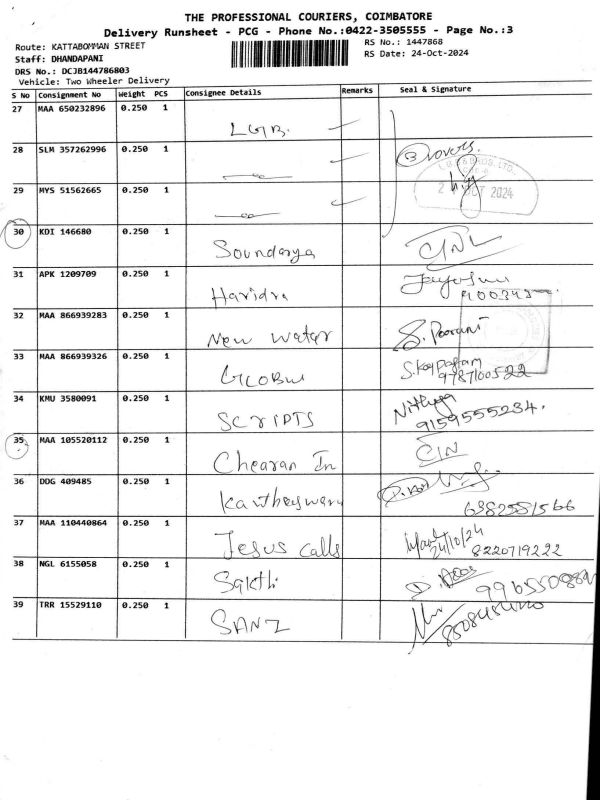 THE PROFESSIONAL COURIERS, COIMBATORE
Delivery Runsheet - PCG - Phone No.:0422-3505555 - Page No.:3
Route: KATTABOMMAN STREET
RS No.: 1447868
Staff: DHANDAPANI
RS Date: 24-Oct-2024
DRS No.: DCJB144786803
Vehicle: Two Wheeler Delivery
S No Consignment No Weight PCS Consignee Details Remarks Seal & Signature
27 MAA 650232896 0.250 1
LGB.
28 SLM 357262996 0.250 1
29 MYS 51562665 0.250 1
OCT 2024
30 KDI 146680 0.250 1
Soundarya
31 APK 1209709 0.250 1
Haridra
32 MAA 866939283 0.250 1
New water S. Poorani
33 MAA 866939326 0.250 1
9787100522
34 KMU 3580091 0.250 1
SCRIPTS Nithya
9159555234.
35 MAA 105520112 0.250 1
Chearan In
36 DDG 409485 0.250 1
6382581566
37 MAA 110440864 0.250 1
Jesus calls 24/10/24
8220719222
38 NGL 6155058 0.250 1
Sakthi
39 TRR 15529110 0.250 1
SANZ